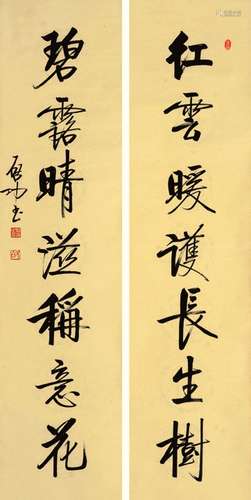 红雲暖護長生樹
碧露晴滋稱意花
啟功書